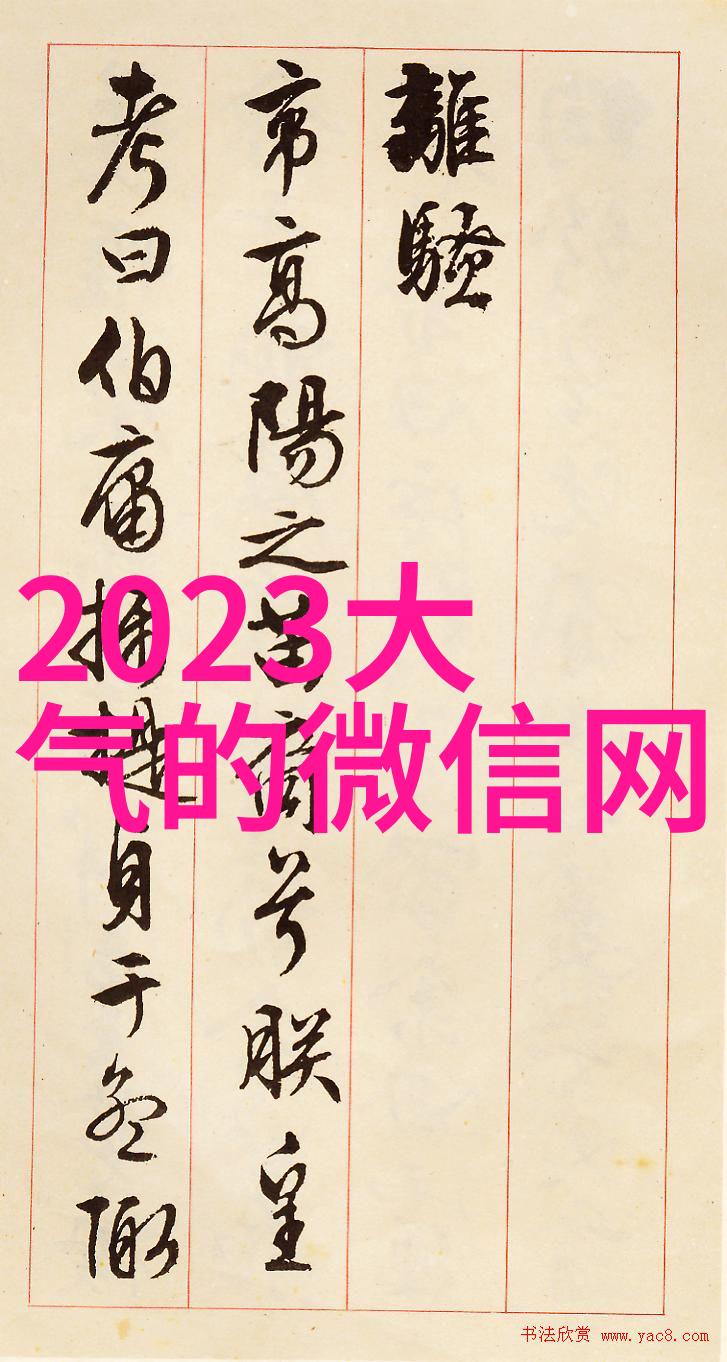 離騷
帝高陽之苗裔兮朕皇
考曰伯庸攝提貞于孟陬
2023大
气的微信网
书法欣赏 www.yac8.com